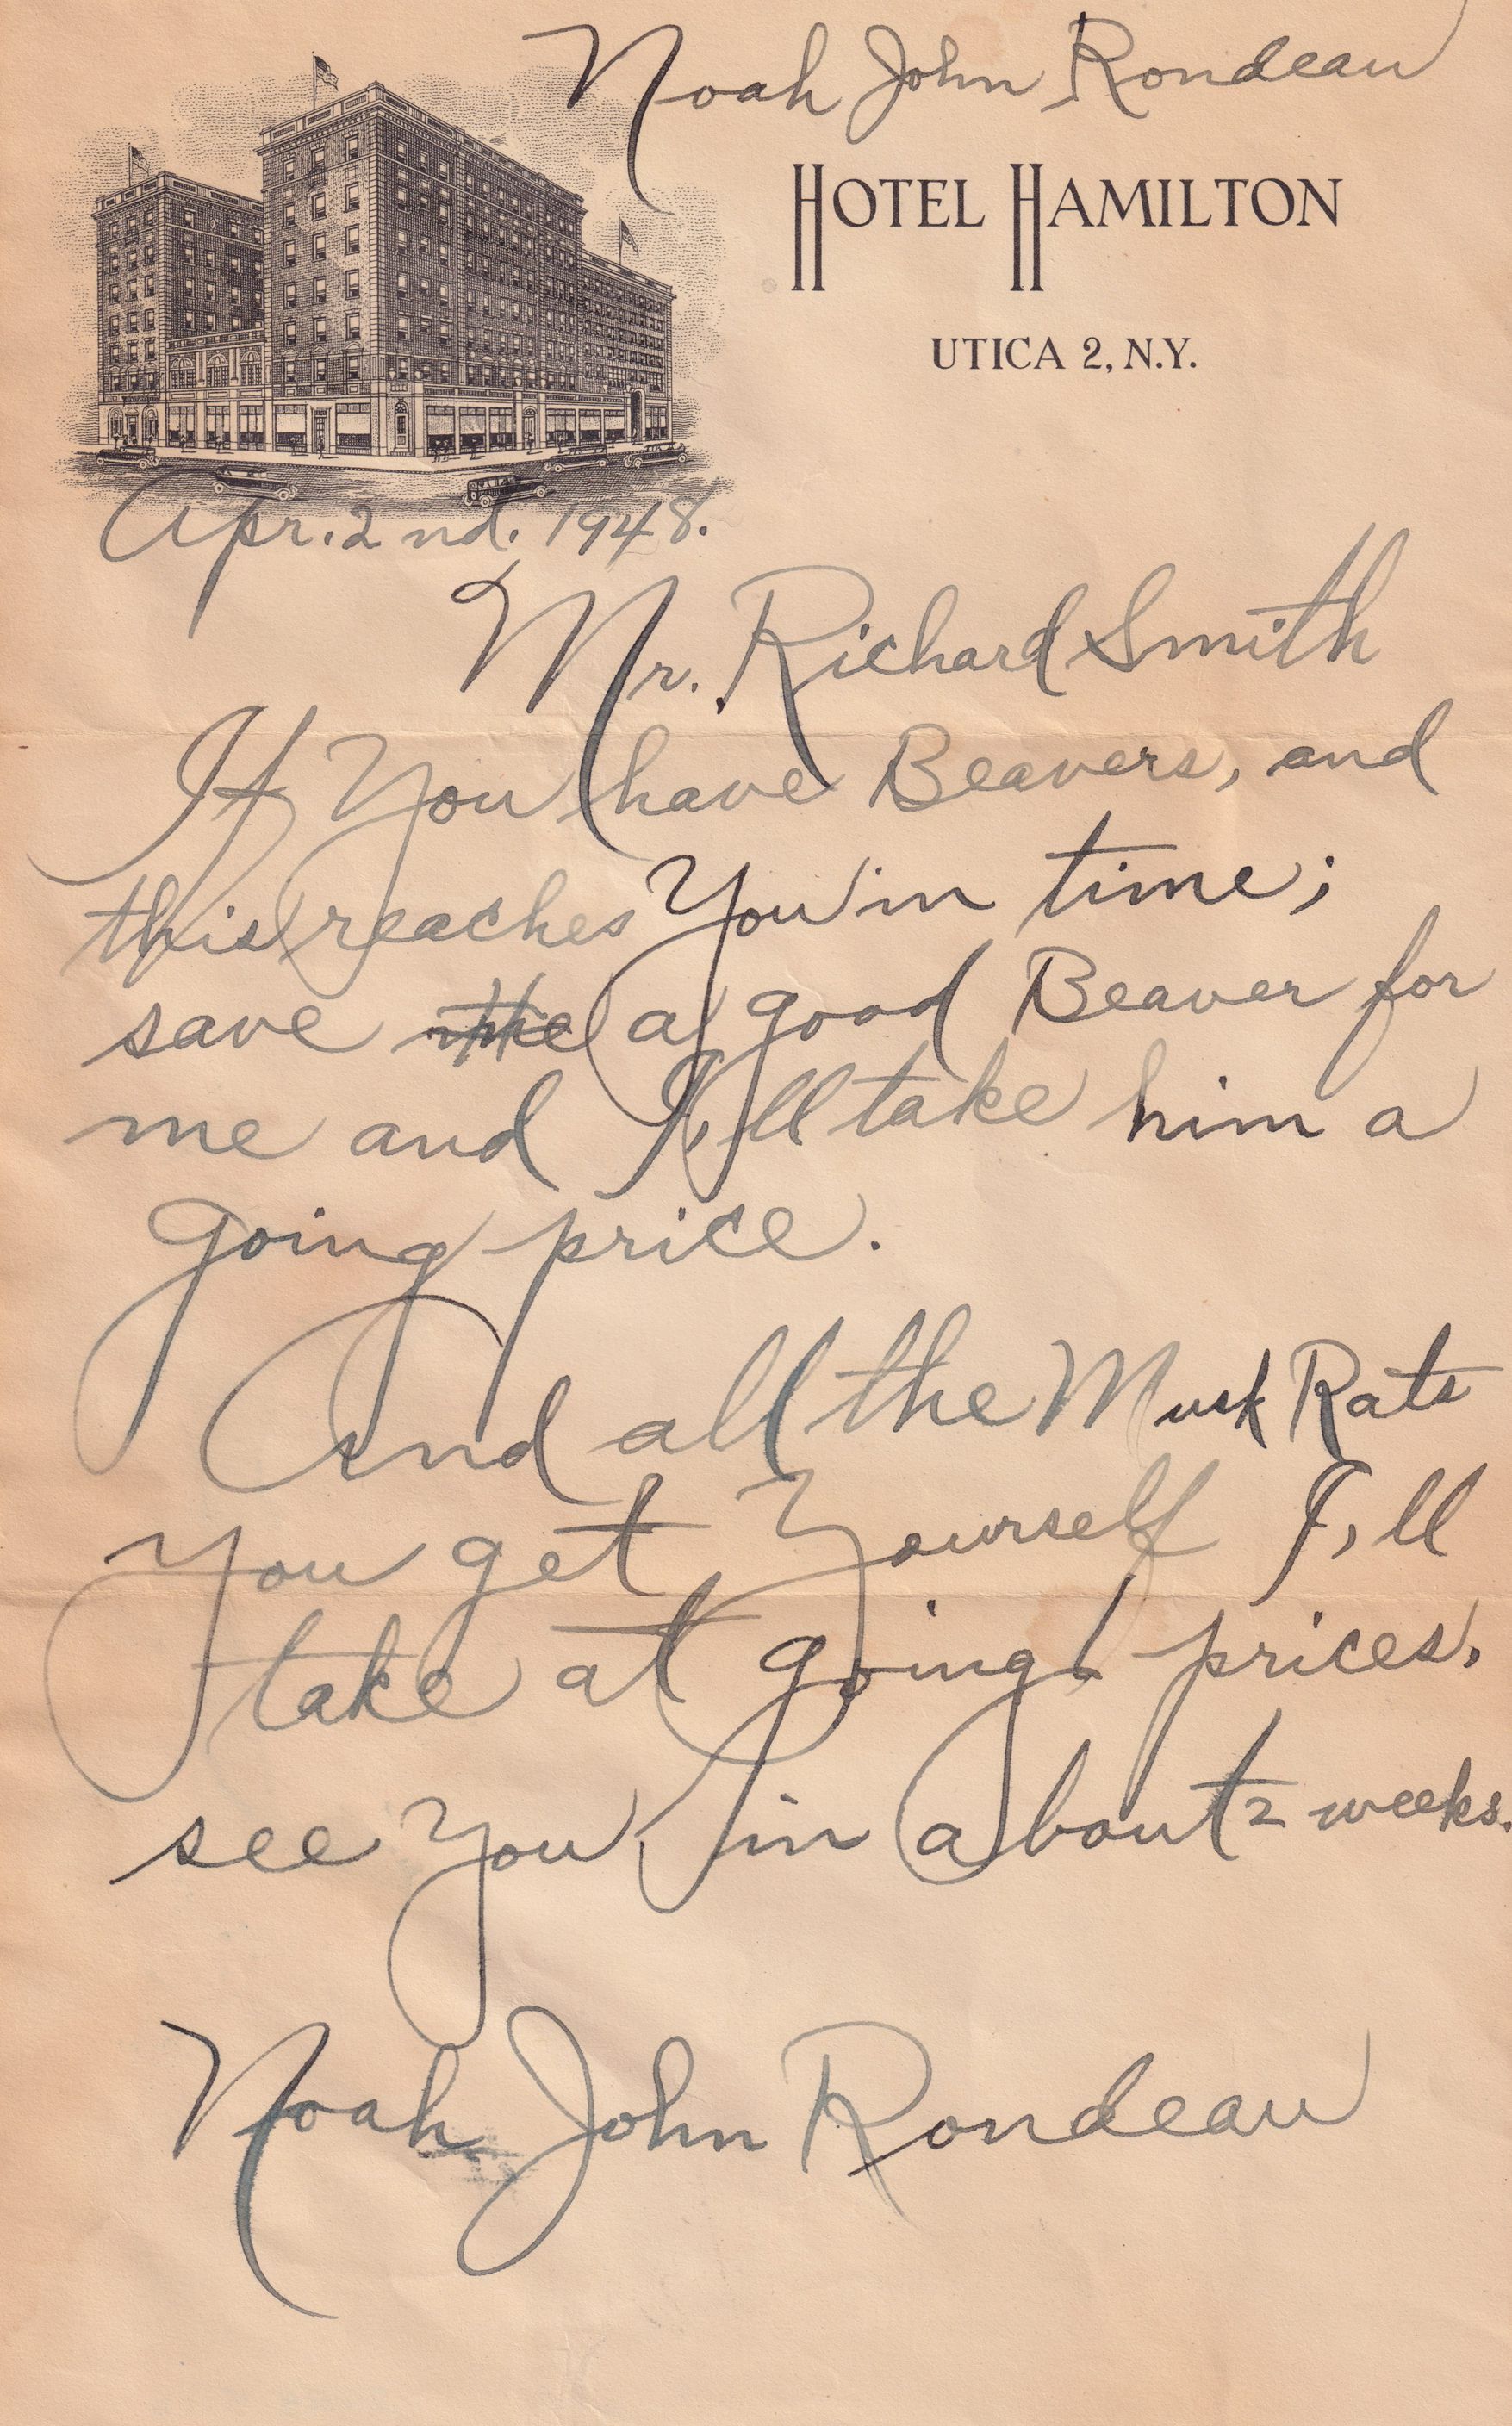 Noah John Rondeau
HOTEL HAMILTON
UTICA 2, N.Y.
Apr. 2nd. 1948.
Mr. Richard Smith
If You have Beavers, and
this reaches You in time;
save a good Beaver for
me and I,ll take him a
going price.
And all the Musk Rats
You get Yourself I,ll
take at going prices.
see you in about 2 weeks.
Noah John Rondeau